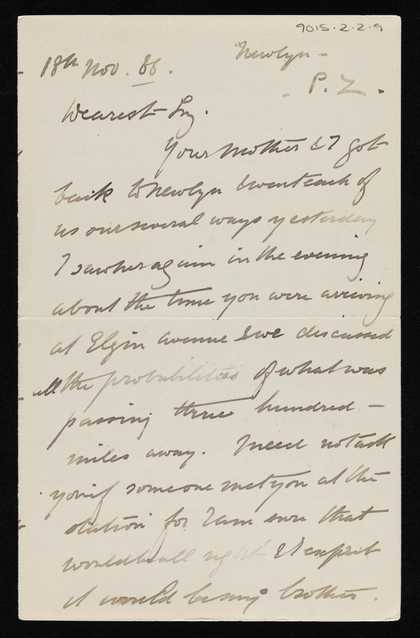 9015-2-2-9
18th Nov. 86.
Newlyn -
P. Z.
Dearest
Your mother & I got
back to Newlyn & went each of
us our several ways yesterday
I saw her again in the evening
about the time you were arriving
at Elgin Avenue & we discussed
all the probabilities of what was
passing three hundred -
miles away. I need not ask
you if someone met you at the
station for I am sure that
would be all right & I expect
it would be my brother.